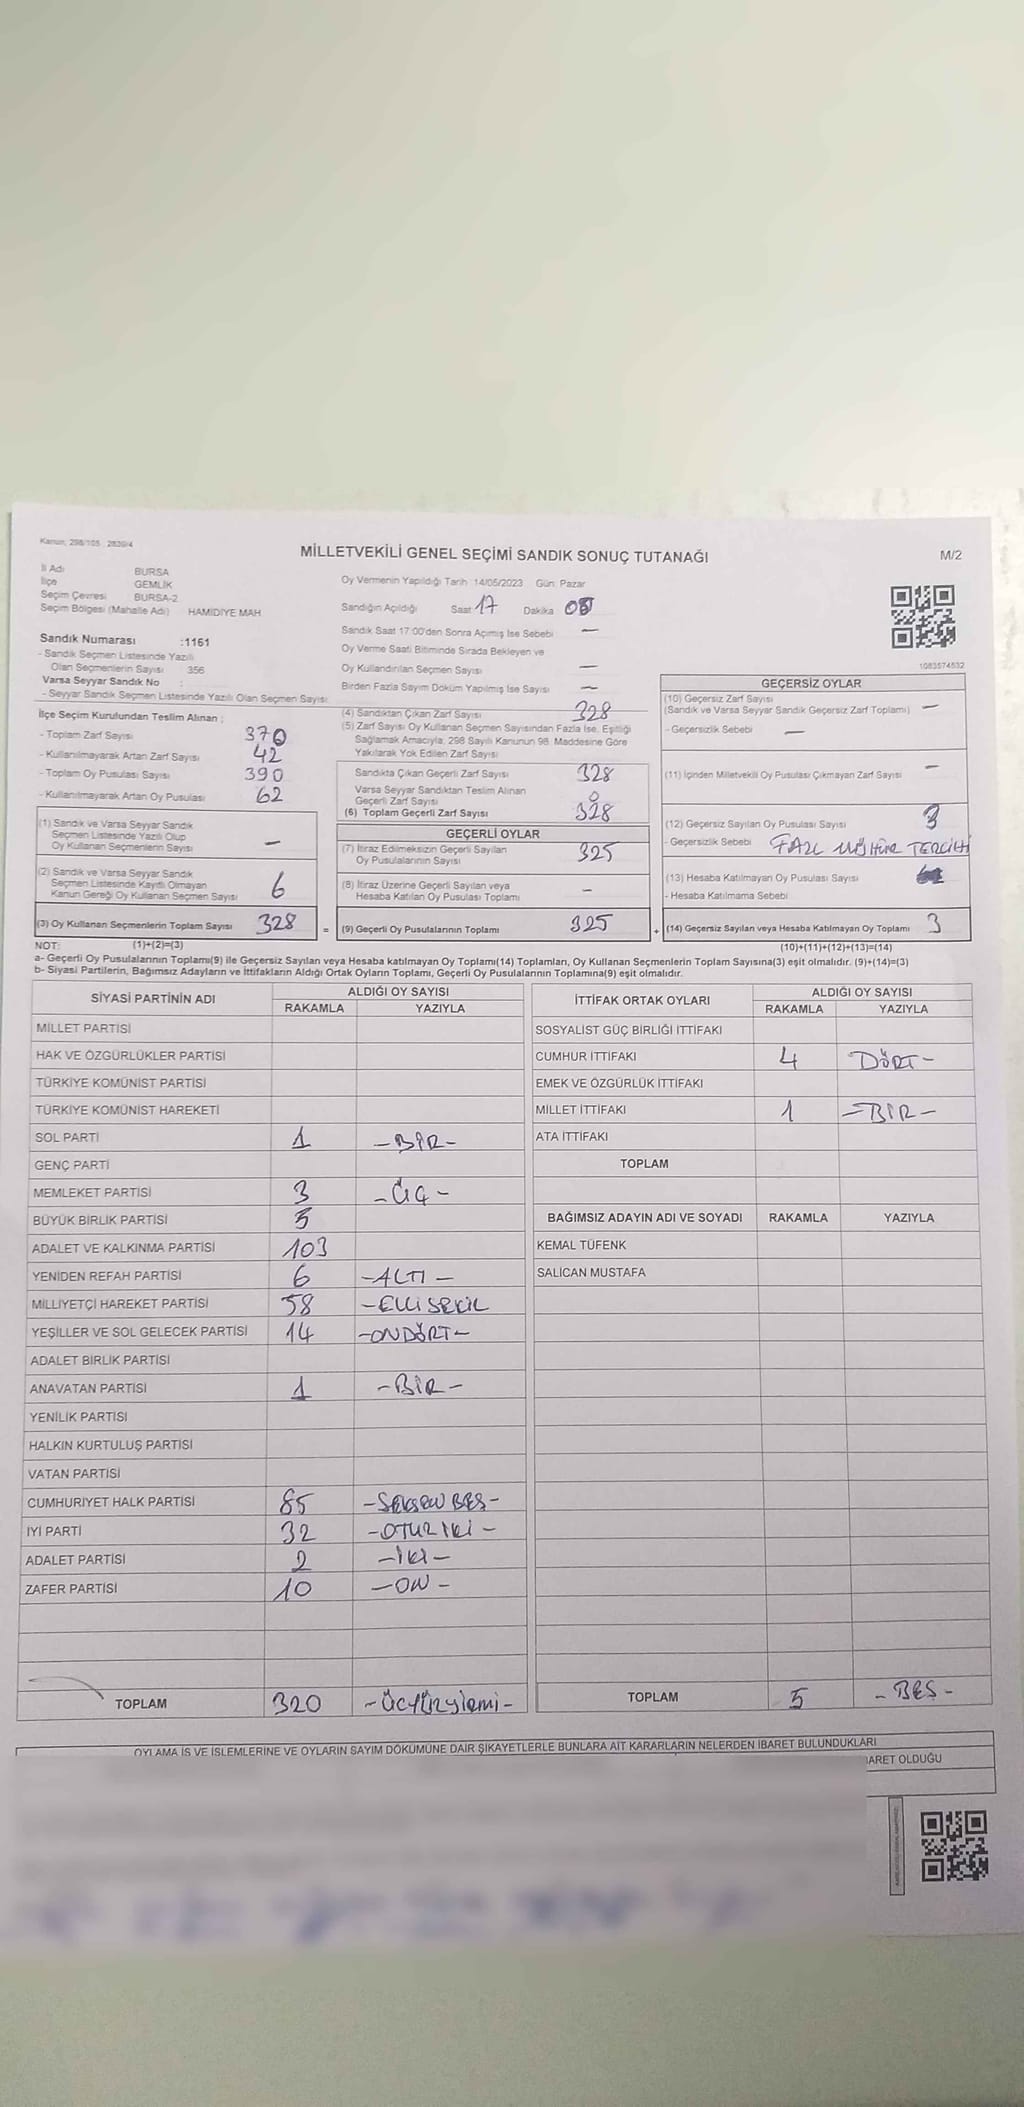 Kanun; 298/105 2839/4
MİLLETVEKİLİ GENEL SEÇİMİ SANDIK SONUÇ TUTANAĞI
M/2
İl Adı BURSA
İlçe GEMLİK
Seçim Çevresi BURSA-2
Seçim Bölgesi (Mahalle Adı) HAMIDIYE MAH.
Sandık Numarası :1161
- Sandık Seçmen Listesinde Yazılı
Olan Seçmenlerin Sayısı 356
Varsa Seyyar Sandık No :
- Seyyar Sandık Seçmen Listesinde Yazılı Olan Seçmen Sayısı:
İlçe Seçim Kurulundan Teslim Alınan ;
- Toplam Zarf Sayısı 370
- Kullanılmayarak Artan Zarf Sayısı 42
- Toplam Oy Pusulası Sayısı 390
- Kullanılmayarak Artan Oy Pusulası 62
(1) Sandık ve Varsa Seyyar Sandık
Seçmen Listesinde Yazılı Olup
Oy Kullanan Seçmenlerin Sayısı —
(2) Sandık ve Varsa Seyyar Sandık
Seçmen Listesinde Kayıtlı Olmayan
Kanun Gereği Oy Kullanan Seçmen Sayısı 6
(3) Oy Kullanan Seçmenlerin Toplam Sayısı 328
Oy Vermenin Yapıldığı Tarih :14/05/2023 Gün: Pazar
Sandığın Açıldığı Saat 17 Dakika
Sandık Saat 17:00'den Sonra Açımış İse Sebebi —
Oy Verme Saati Bitiminde Sırada Bekleyen ve
Oy Kullandırılan Seçmen Sayısı —
Birden Fazla Sayım Döküm Yapılmış İse Sayısı —
(4) Sandıktan Çıkan Zarf Sayısı 328
(5) Zarf Sayısı Oy Kullanan Seçmen Sayısından Fazla İse, Eşitliği
Sağlamak Amacıyla, 298 Sayılı Kanunun 98. Maddesine Göre
Yakılarak Yok Edilen Zarf Sayısı
Sandıkta Çıkan Geçerli Zarf Sayısı 328
Varsa Seyyar Sandıktan Teslim Alınan
Geçerli Zarf Sayısı 0
(6) Toplam Geçerli Zarf Sayısı 328
GEÇERLİ OYLAR
(7) İtiraz Edilmeksizin Geçerli Sayılan
Oy Pusulalarının Sayısı 325
(8) İtiraz Üzerine Geçerli Sayılan veya
Hesaba Katılan Oy Pusulası Toplamı —
= (9) Geçerli Oy Pusulalarının Toplamı 325
1083574632
GEÇERSİZ OYLAR
(10) Geçersiz Zarf Sayısı
(Sandık ve Varsa Seyyar Sandık Geçersiz Zarf Toplamı) —
- Geçersizlik Sebebi —
(11) İçinden Milletvekili Oy Pusulası Çıkmayan Zarf Sayısı —
(12) Geçersiz Sayılan Oy Pusulası Sayısı 3
- Geçersizlik Sebebi MÜHÜR TERCİHİ
(13) Hesaba Katılmayan Oy Pusulası Sayısı
- Hesaba Katılmama Sebebi
+ (14) Geçersiz Sayılan veya Hesaba Katılmayan Oy Toplamı 3
NOT: (1)+(2)=(3)
(10)+(11)+(12)+(13)=(14)
a- Geçerli Oy Pusulalarının Toplamı(9) ile Geçersiz Sayılan veya Hesaba katılmayan Oy Toplamı(14) Toplamları, Oy Kullanan Seçmenlerin Toplam Sayısına(3) eşit olmalıdır. (9)+(14)=(3)
b- Siyasi Partilerin, Bağımsız Adayların ve İttifakların Aldığı Ortak Oyların Toplamı, Geçerli Oy Pusulalarının Toplamına(9) eşit olmalıdır.
SİYASİ PARTİNİN ADI ALDIĞI OY SAYISI
RAKAMLA YAZIYLA
MİLLET PARTİSİ
HAK VE ÖZGÜRLÜKLER PARTİSİ
TÜRKİYE KOMÜNİST PARTİSİ
TÜRKİYE KOMÜNİST HAREKETİ
SOL PARTİ 1 -BİR-
GENÇ PARTİ
MEMLEKET PARTİSİ 3 -ÜÇ-
BÜYÜK BİRLİK PARTİSİ 5
ADALET VE KALKINMA PARTİSİ 103
YENİDEN REFAH PARTİSİ 6 -ALTI-
MİLLİYETÇİ HAREKET PARTİSİ 58 -ELLİ SEKİL
YEŞİLLER VE SOL GELECEK PARTİSİ 14 -ONDÖRT-
ADALET BİRLİK PARTİSİ
ANAVATAN PARTİSİ 1 -BİR-
YENİLİK PARTİSİ
HALKIN KURTULUŞ PARTİSİ
VATAN PARTİSİ
CUMHURİYET HALK PARTİSİ 85 -SEKSEN BEŞ-
İYİ PARTİ 32 -OTUZ İKİ-
ADALET PARTİSİ 2 -İKİ-
ZAFER PARTİSİ 10 -ON-
TOPLAM 320 -ÜÇYÜZyirmi-
İTTİFAK ORTAK OYLARI ALDIĞI OY SAYISI
RAKAMLA YAZIYLA
SOSYALİST GÜÇ BİRLİĞİ İTTİFAKI
CUMHUR İTTİFAKI 4 DÖRT-
EMEK VE ÖZGÜRLÜK İTTİFAKI
MİLLET İTTİFAKI 1 -BİR-
ATA İTTİFAKI
TOPLAM
BAĞIMSIZ ADAYIN ADI VE SOYADI RAKAMLA YAZIYLA
KEMAL TÜFENK
SALİCAN MUSTAFA
TOPLAM 5 -BEŞ-
OYLAMA İŞ VE İŞLEMLERİNE VE OYLARIN SAYIM DÖKÜMÜNE DAİR ŞİKAYETLERLE BUNLARA AİT KARARLARIN NELERDEN İBARET BULUNDUKLARI
BARET OLDUĞU